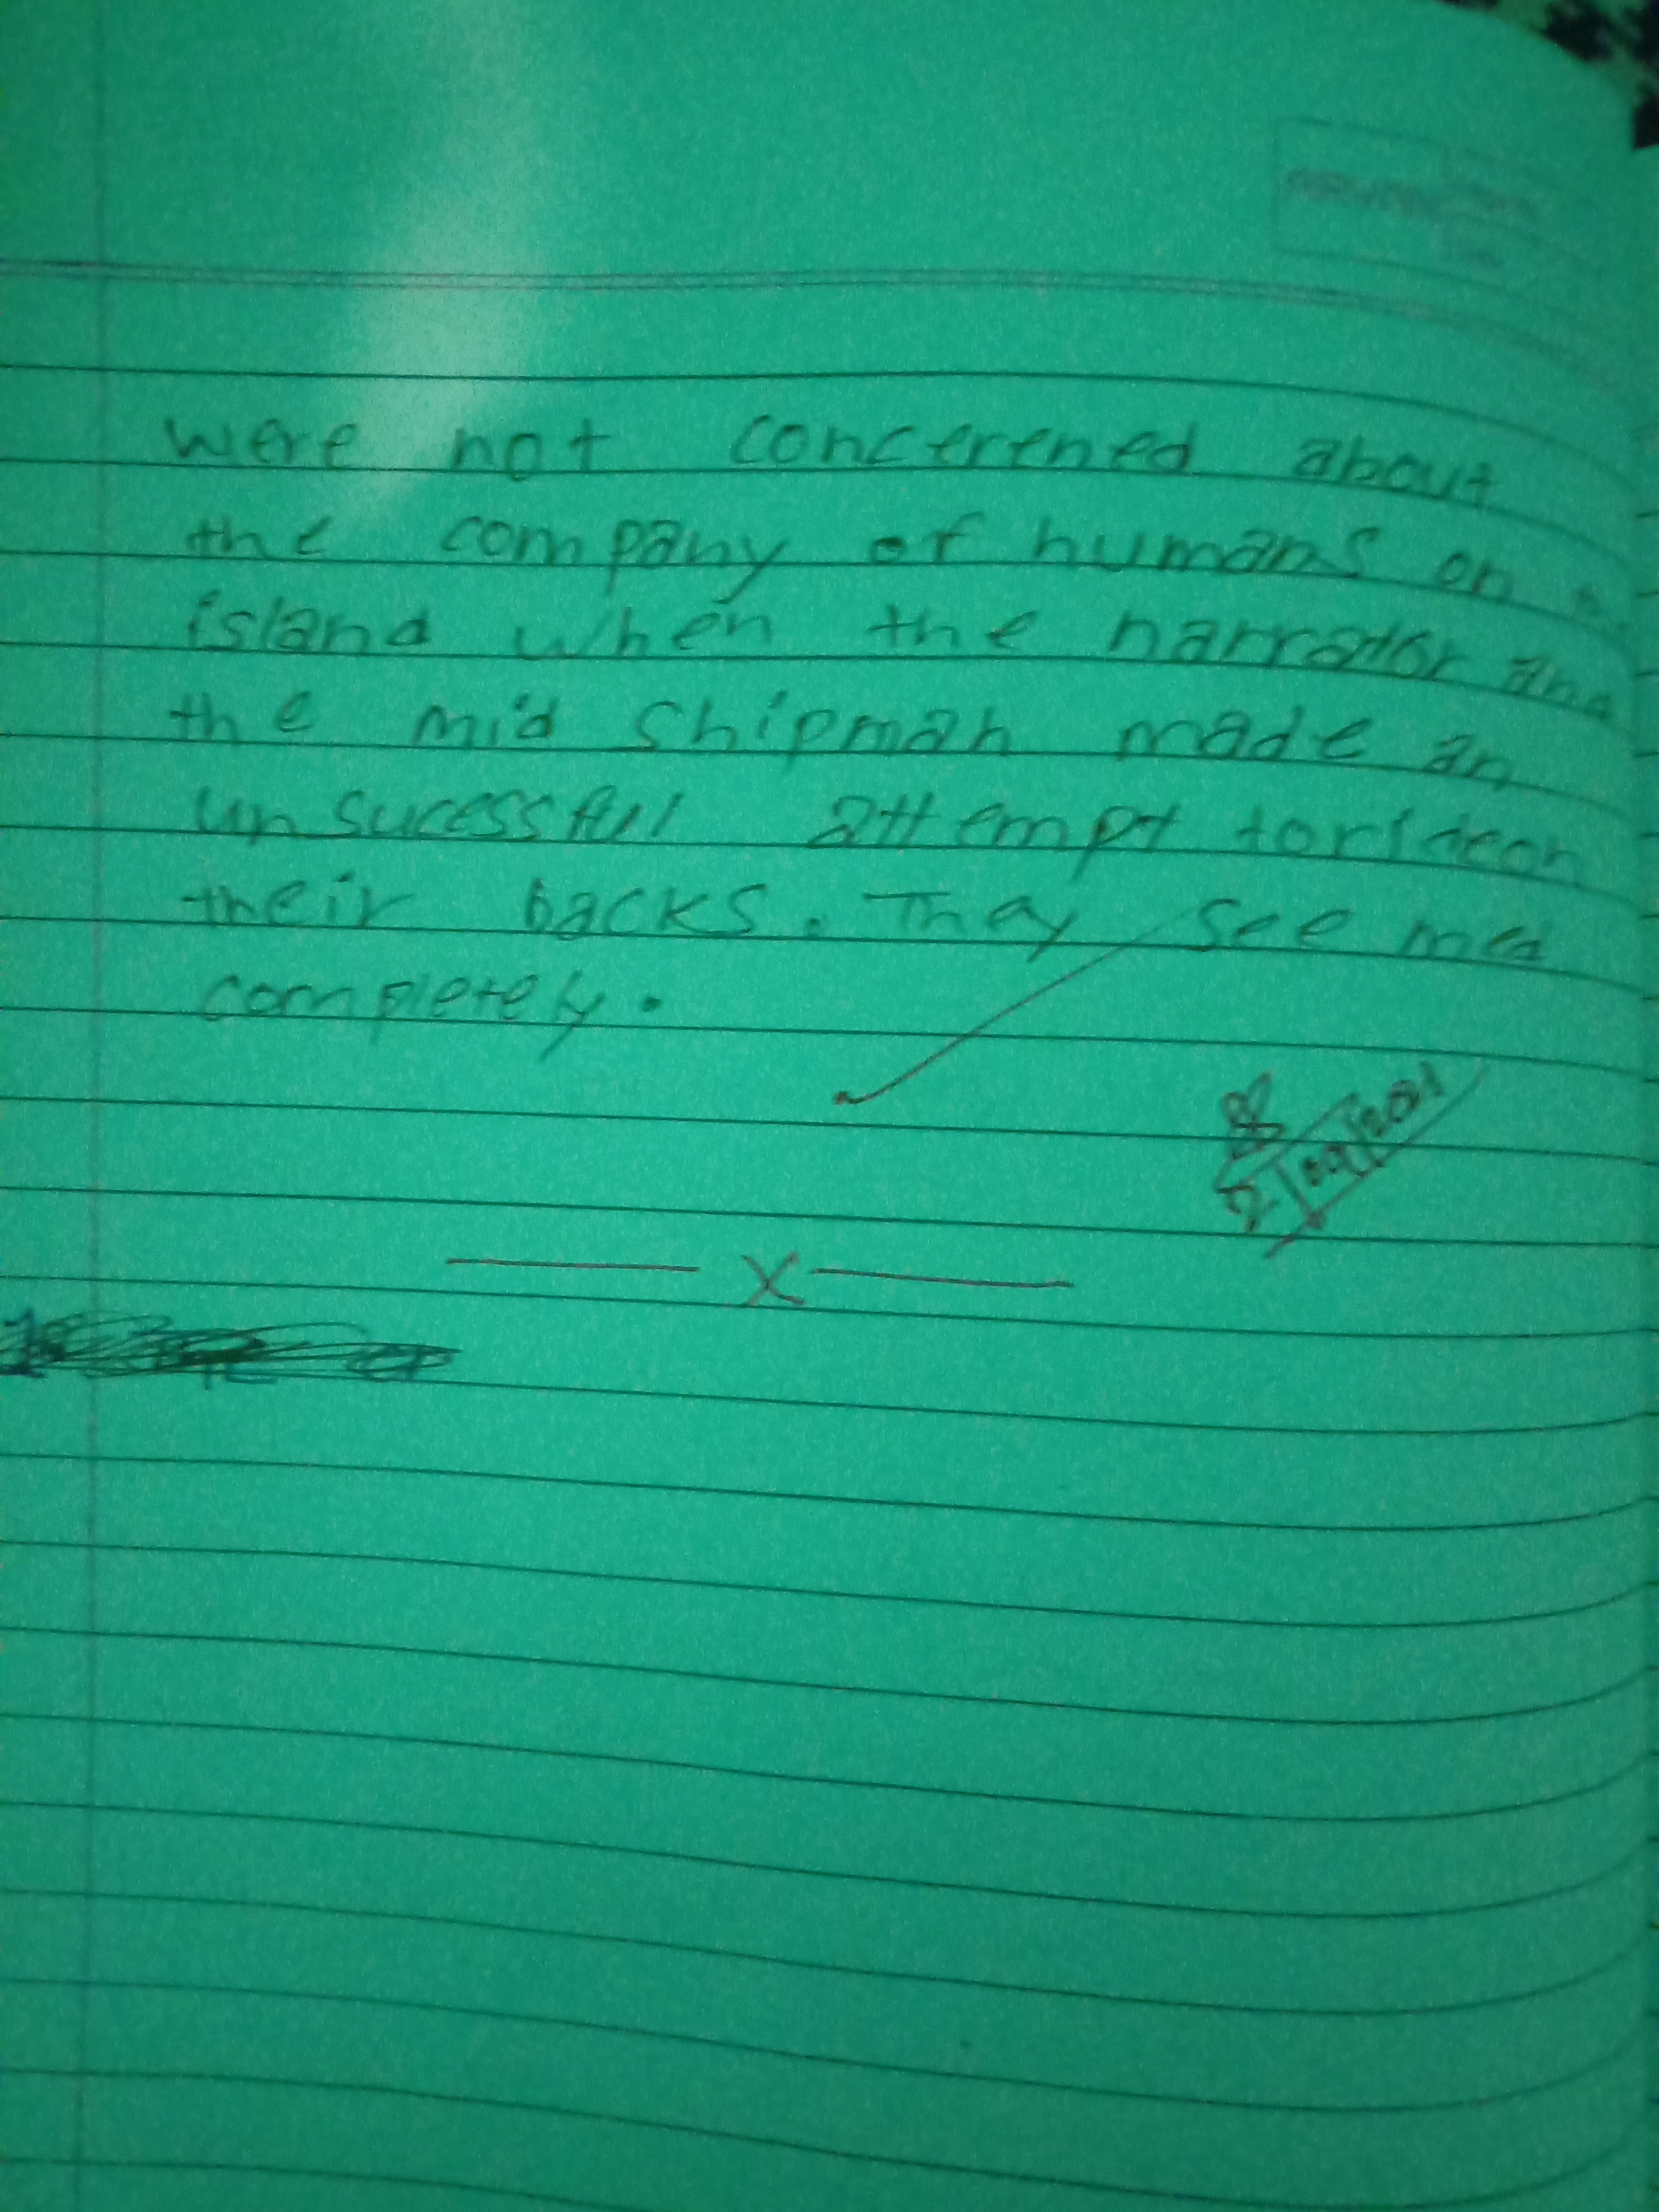 were not concerened about
the company of humans on
island when the narrator and
the mid shipman made an
unsucessful attempt torideon
their backs. They see med
completely.
2/09/2021
X